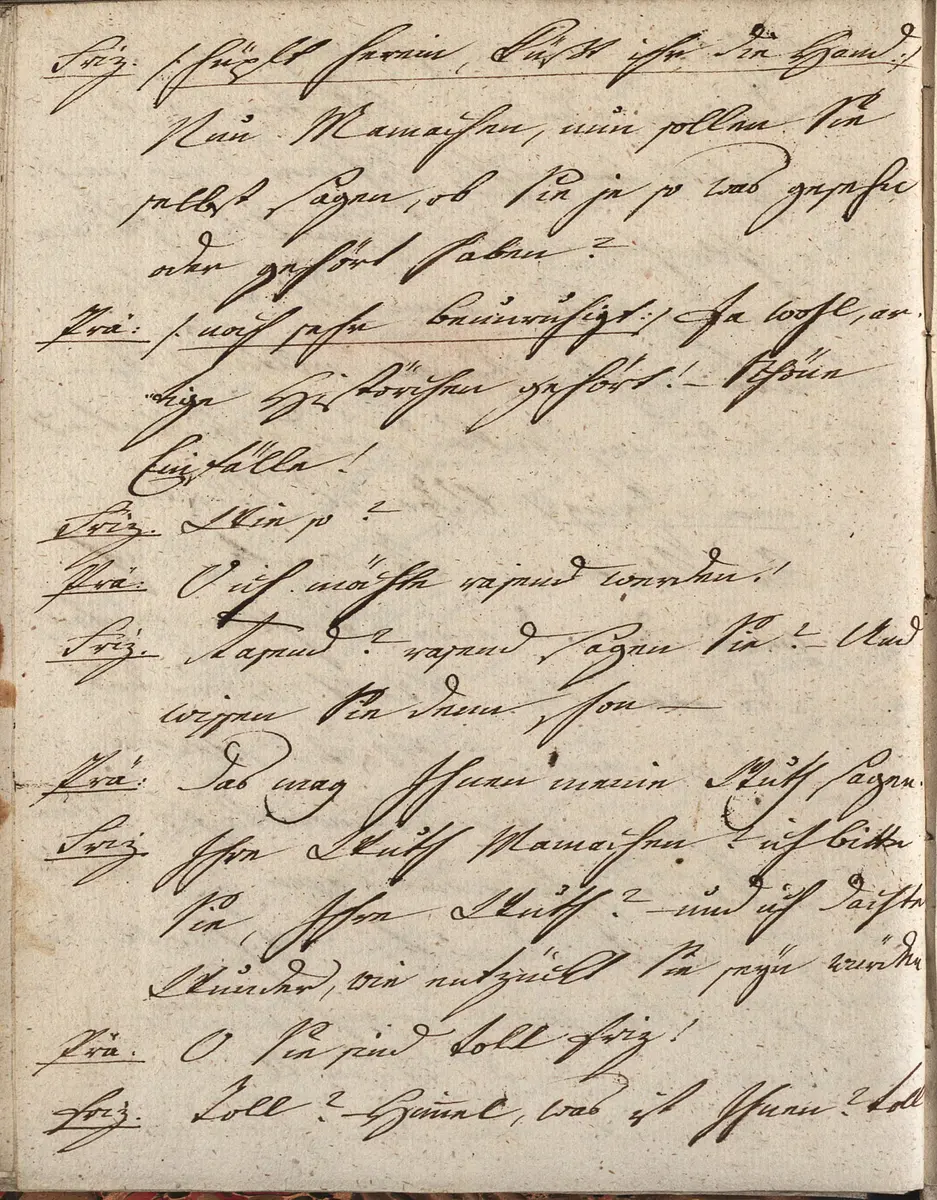 Friz. /: hüpft herein, küßt ihr die Hand :/
Nun Mamachen, nun sollen Sie
selbst sagen, ob Sie je so was gesehn
oder gehört haben?
Prä: /: noch sehr beunruhigt :/ Ja wohl, ar-
tige Histörchen gehört! – Schöne
Einfälle!
Friz. Wie so?
Prä: O ich möchte rasend werden!
Friz. Rasend? rasend sagen Sie? – Und
wissen Sie denn schon —
Prä: Das mag Ihnen meine Wuth sagen.
Friz. Ihre Wuth Mamachen? ich bitte
Sie, Ihre Wuth? – und ich dachte
Wunder, wie entzückt Sie seyn würden
Prä. O Sie sind toll Friz!
Friz. Toll? – Him̅el, was ist Ihnen? toll